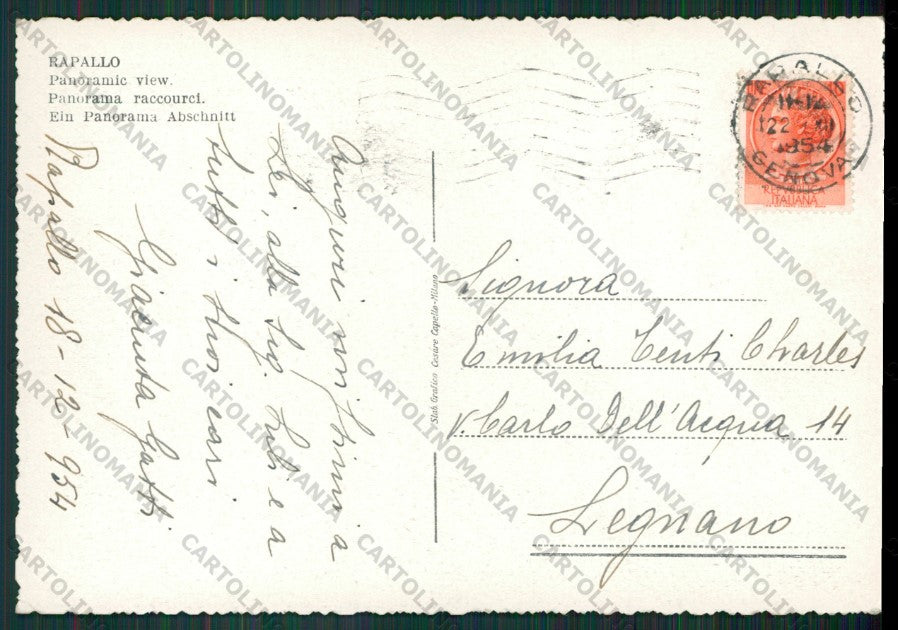 RAPALLO
Panoramic view.
Panorama raccourci.
Ein Panorama Abschnitt
Rapallo 18-12-954
Auguri vivissimi a
Lei, alla Sig.
tutti i Suoi cari
Giacinta Gatti
Stab. Grafico Cesare Capello-Milano
RAPALLO
1954
GENOVA
REPUBBLICA
ITALIANA
Signora
Emilia Centi Charles
v. Carlo Dell'Acqua 14
Legnano
CARTOLINOMANIA